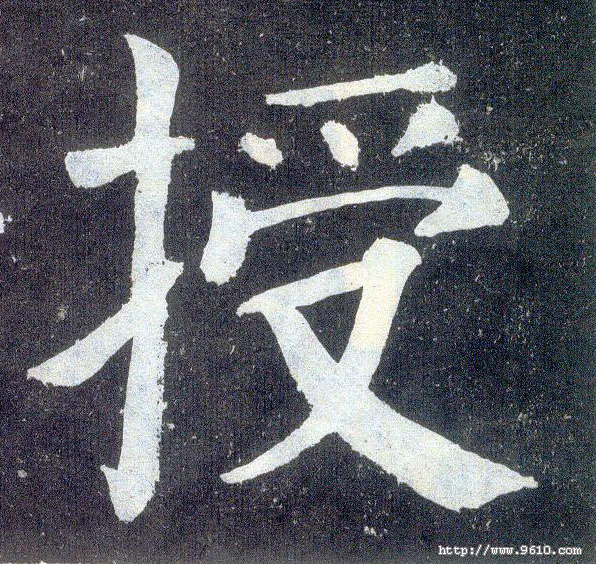 授
http://www.9610.com